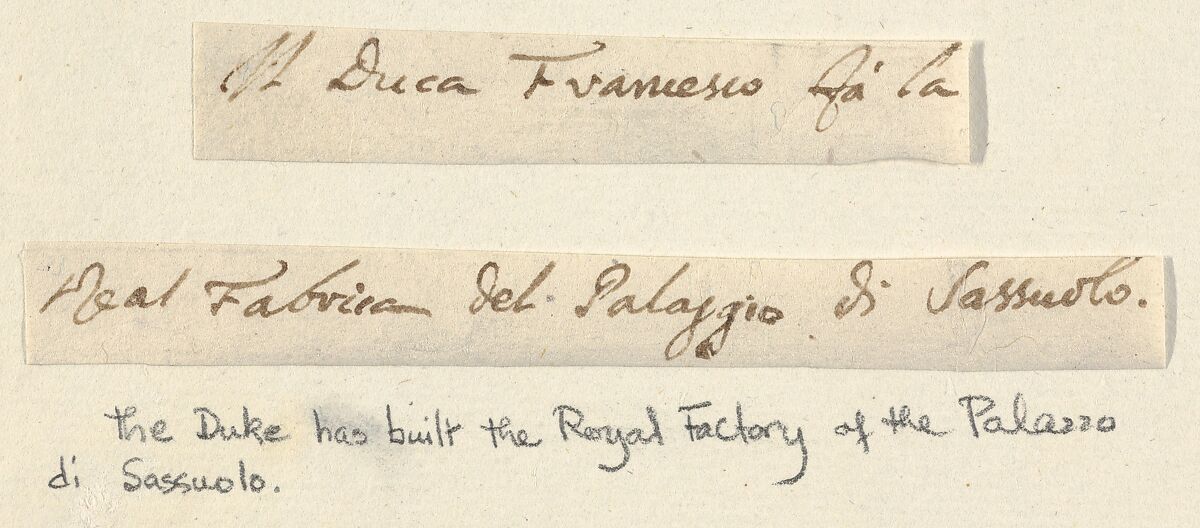 Il Duca Francesco fà la
Real Fabrica del Palaggio di Sassuolo.
the Duke has built the Royal Factory of the Palazzo
di Sassuolo.